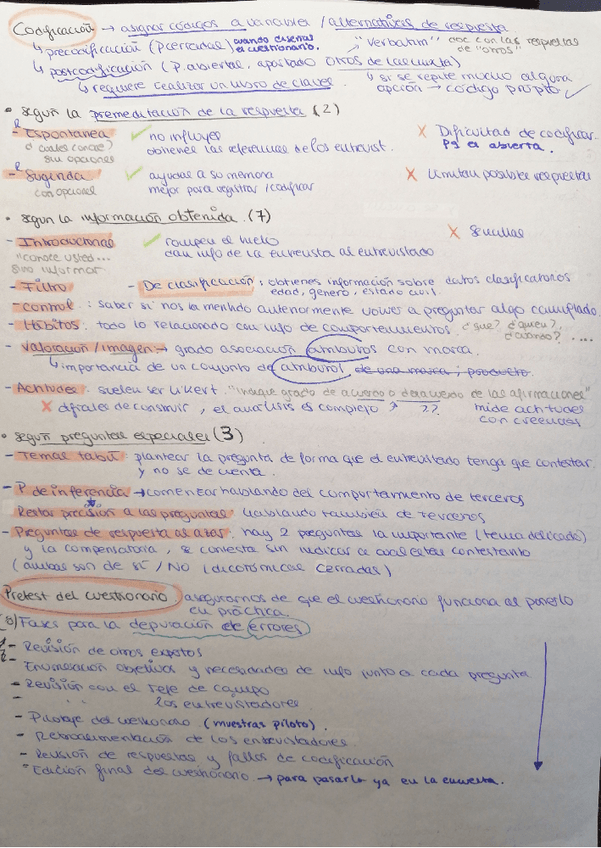 Codificación → asignar códigos a variables / alternativas de respuesta
↳ precodificación (P cerradas) cuando diseñas el cuestionario. → "verbatim", doc con las respuestas de "otros"
↳ postcodificación (P. abiertas, apartado otros de las mixtas)
↳ requiere realizar un libro de claves. ↳ si se repite mucho alguna opción → código propio ✓
• según la premeditación de la respuesta (2)
- Espontánea ✓ no influyes ✗ Dificultad de codificar.
¿cuáles conoce? sin opciones obtienes las referencias de los entrevist. Pq es abierta.
- Sugerida ✓ ayudas a su memoria ✗ Limitan posibles respuestas
con opciones mejor para registrar / codificar
• según la información obtenida. (7)
- Introductorias ✓ rompen el hielo ✗ Sencillas
"conoce usted... dan info de la entrevista al entrevistado
sino informar.
- Filtro - De clasificación: obtienes información sobre datos clasificatorios
edad, género, estado civil.
- control: saber si nos ha mentido anteriormente volver a preguntar algo camuflado.
- Hábitos. todo lo relacionado con info de comportamientos. ¿qué?, ¿quién?, ¿cuándo? ....
- Valoración / imagen → grado asociación atributos con marca.
↳ importancia de un conjunto de atributos de una marca; producto.
- Actitudes. suelen ser Likert. "indique grado de acuerdo o desacuerdo de las afirmaciones"
✗ difíciles de construir, el análisis es complejo ?? mide actitudes con creencias
• según preguntas especiales (3)
- Temas tabú plantear la pregunta de forma que el entrevistado tenga que contestar y no se de cuenta.
- P de inferencia → comentar hablando del comportamiento de terceros
Restar precisión a las preguntas hablando también de terceros
- Preguntas de respuesta al azar. hay 2 preguntas la importante (tema delicado)
y la compensatoria, se contesta sin indicar a cual estas contestando
(ambas son de sí / No (dicotómicas cerradas)
Pretest del cuestionario asegurarnos de que el cuestionario funciona al ponerlo en práctica.
(8) Fases para la depuración de errores
- Revisión de otros expertos
- Enumeración objetivos y necesidades de info junto a cada pregunta
- Revisión con el Jefe de campo
- " " los entrevistadores
- Pilotaje del cuestionario (muestras piloto).
- Retroalimentación de los entrevistadores.
- Revisión de respuestas y fallos de codificación
- Edición final del cuestionario → para pasarlo ya en la encuesta.